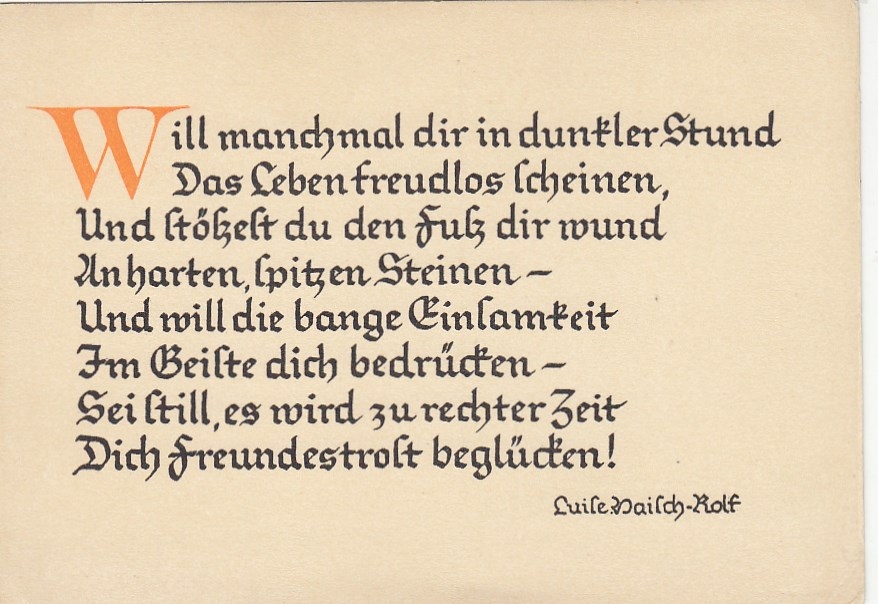 Will manchmal dir in dunkler Stund
Das Leben freudlos ſcheinen,
Und ſtößeſt du den Fuß dir wund
An harten, ſpitzen Steinen –
Und will die bange Einſamkeit
Im Geiſte dich bedrücken –
Sei ſtill, es wird zu rechter Zeit
Dich Freundestroſt beglücken!
Luiſe Haiſch-Rolf